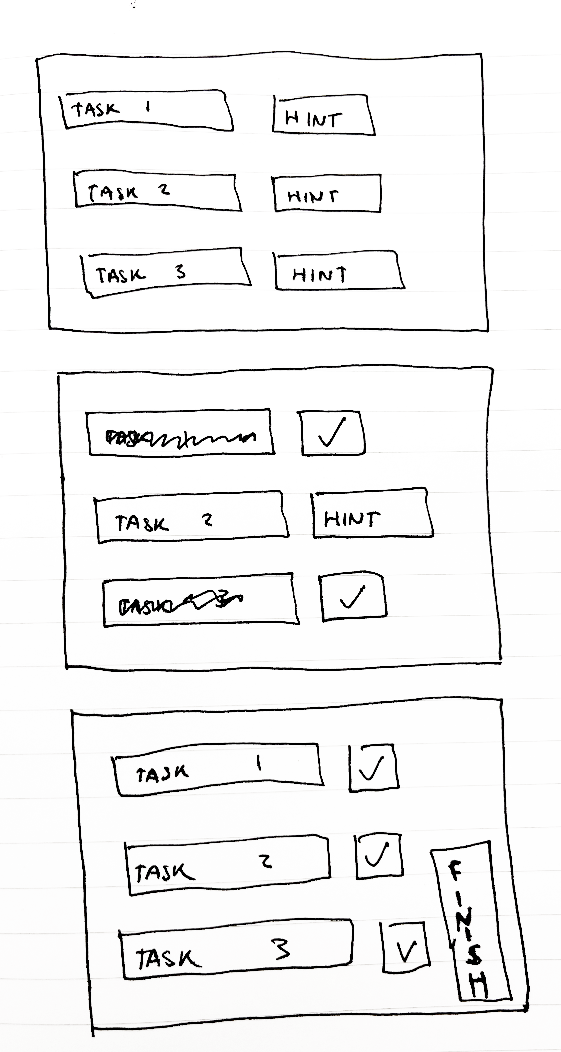 TASK 1 HINT
TASK 2 HINT
TASK 3 HINT
✓
TASK 2 HINT
TASK 3 ✓
TASK 1 ✓
TASK 2 ✓
TASK 3 ✓
FINISH